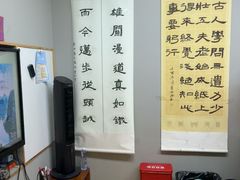 古人學問無遺力少
壯工夫老始成紙上
得來終覺淺絕知此
事要躬行
雄關漫道真如鐵
而今邁步從頭越